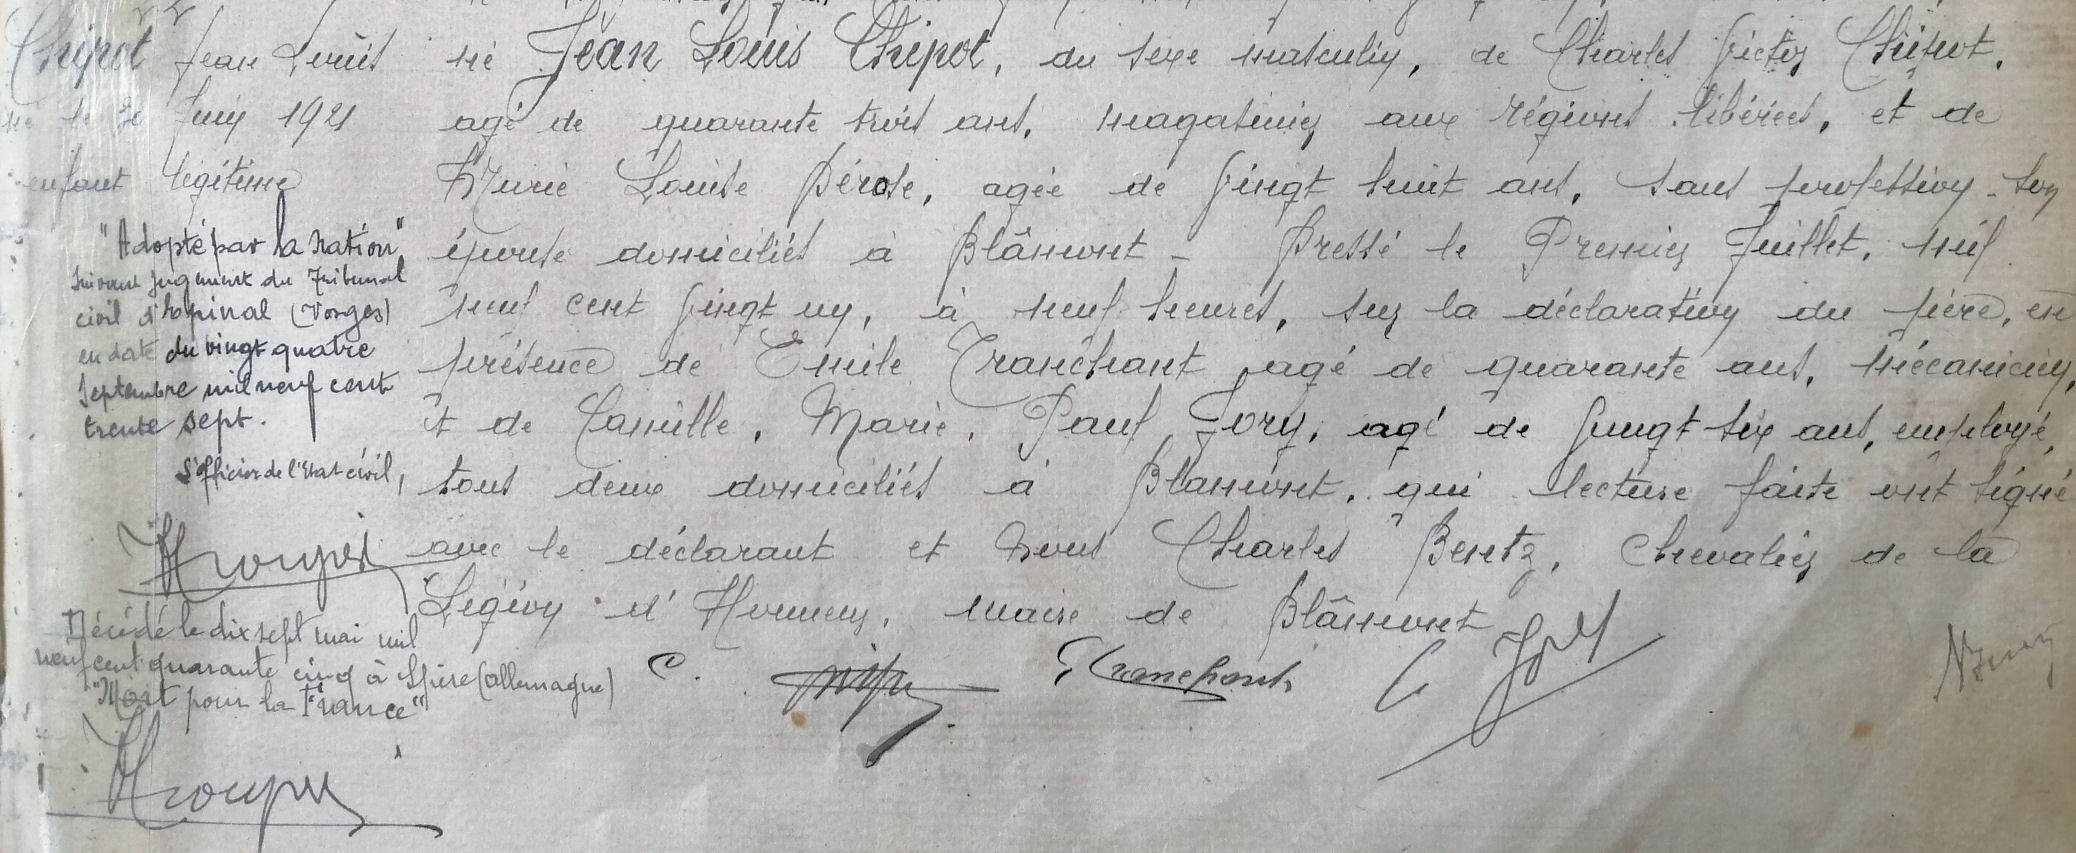 Chipot Jean Louis
né le 30 Juin 1921
enfant légitime
"Adopté par la Nation"
suivant jugement du Tribunal
civil d'Epinal (Vosges)
en date du vingt quatre
Septembre mil neuf cent
trente sept.
L'officier de l'Etat civil,
Décédé le dix sept mai mil
neuf cent quarante cinq à Spire (allemagne)
"Mort pour la France"
né Jean Louis Chipot, du sexe masculin, de Charles Victor Chipot,
agé de quarante trois ans, magasinier aux régions libérées, et de
Marie Louise Pérose, agée de vingt huit ans, sans profession son
épouse domiciliés à Blâmont - Dressé le Premier Juillet, mil
neuf cent vingt un, à neuf heures, sur la déclaration du père, en
présence de Emile Tranchant agé de quarante ans, mécanicien,
et de Camille, Marie, Paul Jory, agé de vingt six ans, employé,
tous deux domiciliés à Blamont, qui lecture faite ont signé
avec le déclarant et Nous Charles Bentz, Chevalier de la
Légion d'Honneur, maire de Blâmont
E Tranchant
C Jory